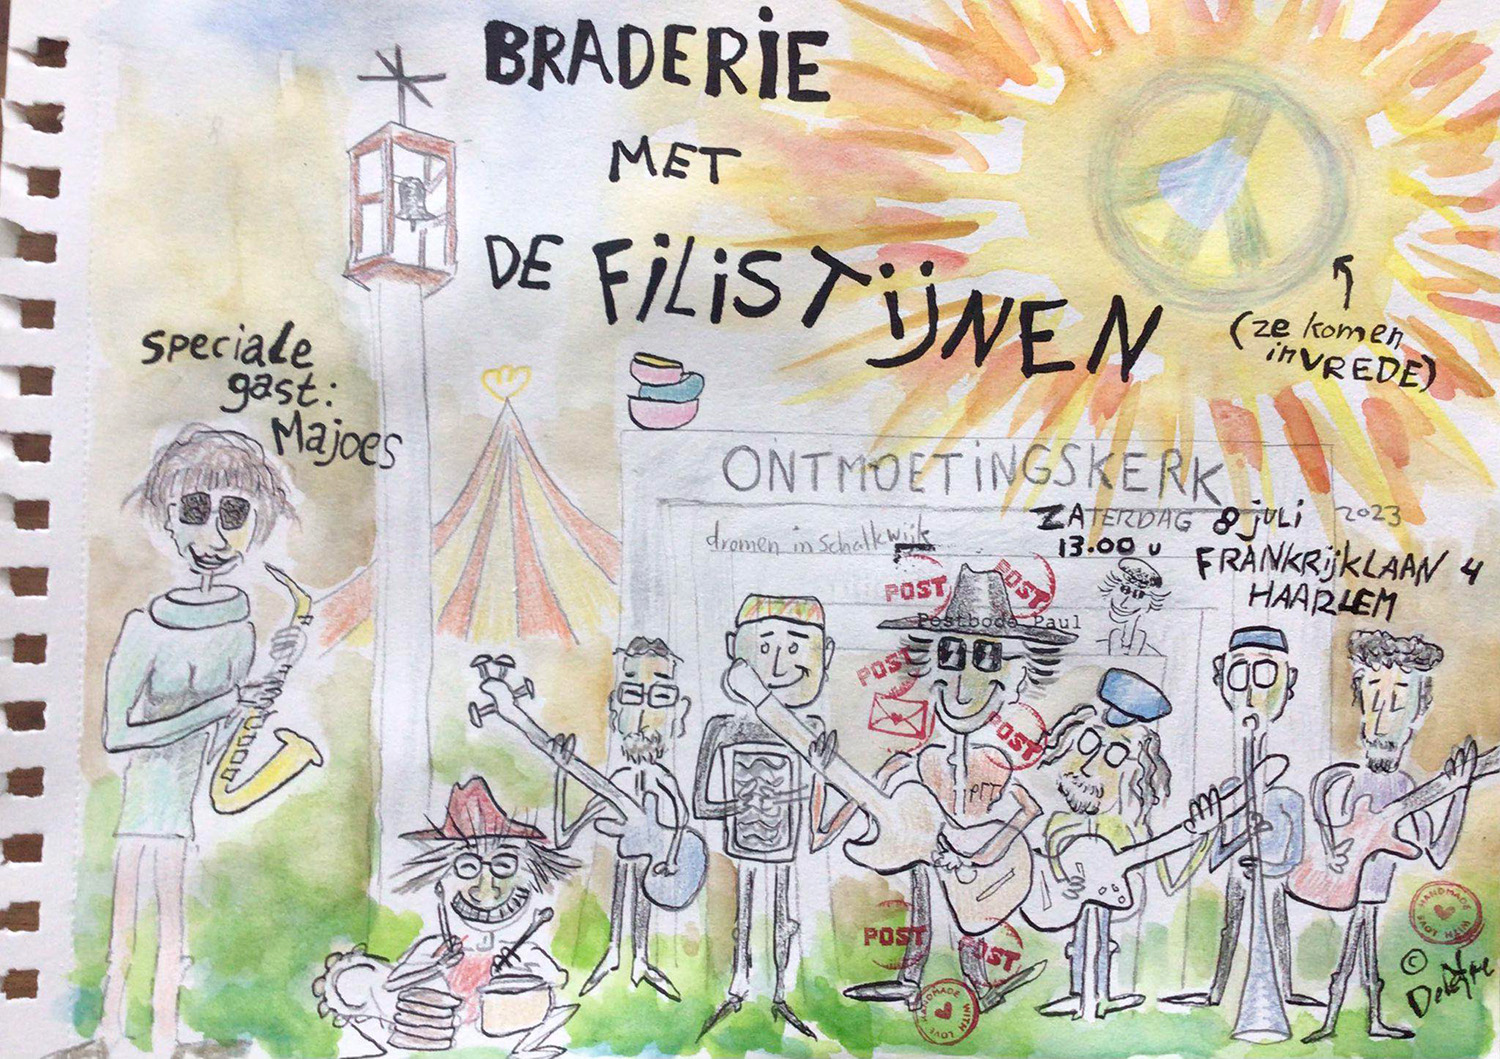 BRADERIE
MET
DE FiLiSTijNEN
(ze komen
in VREDE)
speciale
gast:
Majoes
ONTMOETiNGSKERK
ZATERDAG 8 juli 2023
13.00 u
FRANKRijKLAAN 4
HAARLEM
dromen in Schalkwijk
POST
POST
Postbode Paul
POST
POST
POST
POST
HANDMADE WITH LOVE
HANDMADE WITH LOVE
©